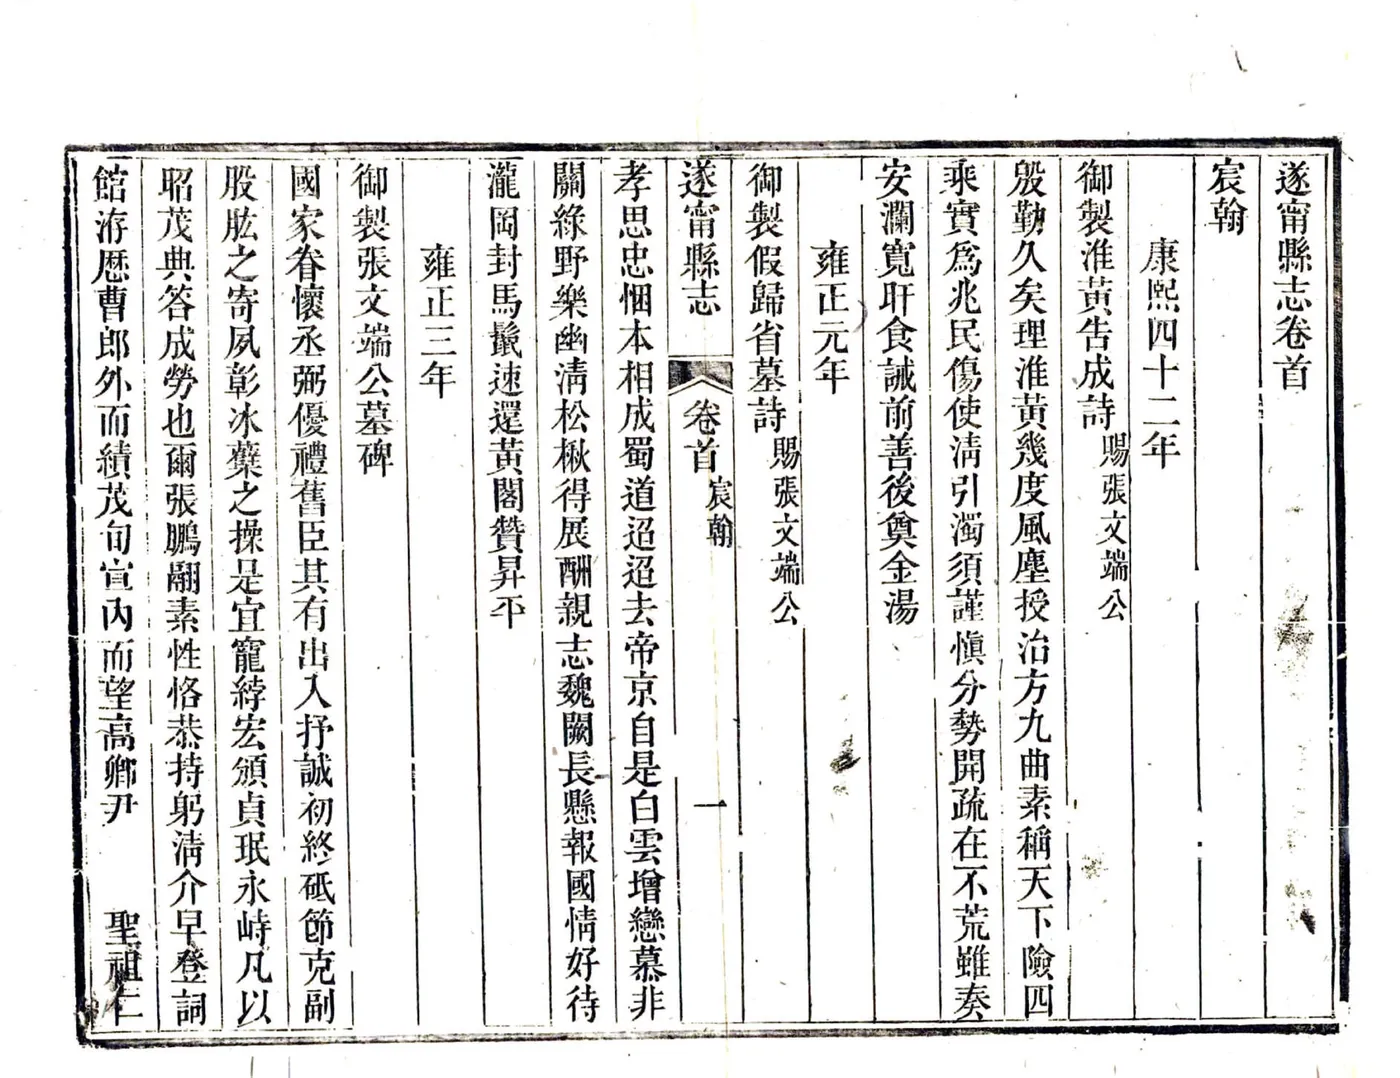 遂甯縣志卷首
宸翰
康熙四十二年
御製淮黃告成詩賜張文端公
殷勤久矣理淮黃幾度風塵授治方九曲素稱天下險四
乘實爲兆民傷使淸引濁須謹愼分勢開疏在不荒雖奏
安瀾寬旰食誡前善後奠金湯
雍正元年
御製假歸省墓詩賜張文端公
遂甯縣志 卷首宸翰 一
孝思忠悃本相成蜀道迢迢去帝京自是白雲增戀慕非
關綠野樂幽淸松楸得展酬親志魏闕長懸報國情好待
瀧岡封馬鬣速還黃閣贊昇平
雍正三年
御製張文端公墓碑
國家眷懷丞弼優禮舊臣其有出入抒誠初終砥節克副
股肱之寄夙彰冰蘗之操是宜寵綍宏頒貞珉永峙凡以
昭茂典答成勞也爾張鵬翮素性恪恭持躬淸介早登詞
館洊歷曹郎外而績茂旬宣內而望高卿尹 聖祖仁